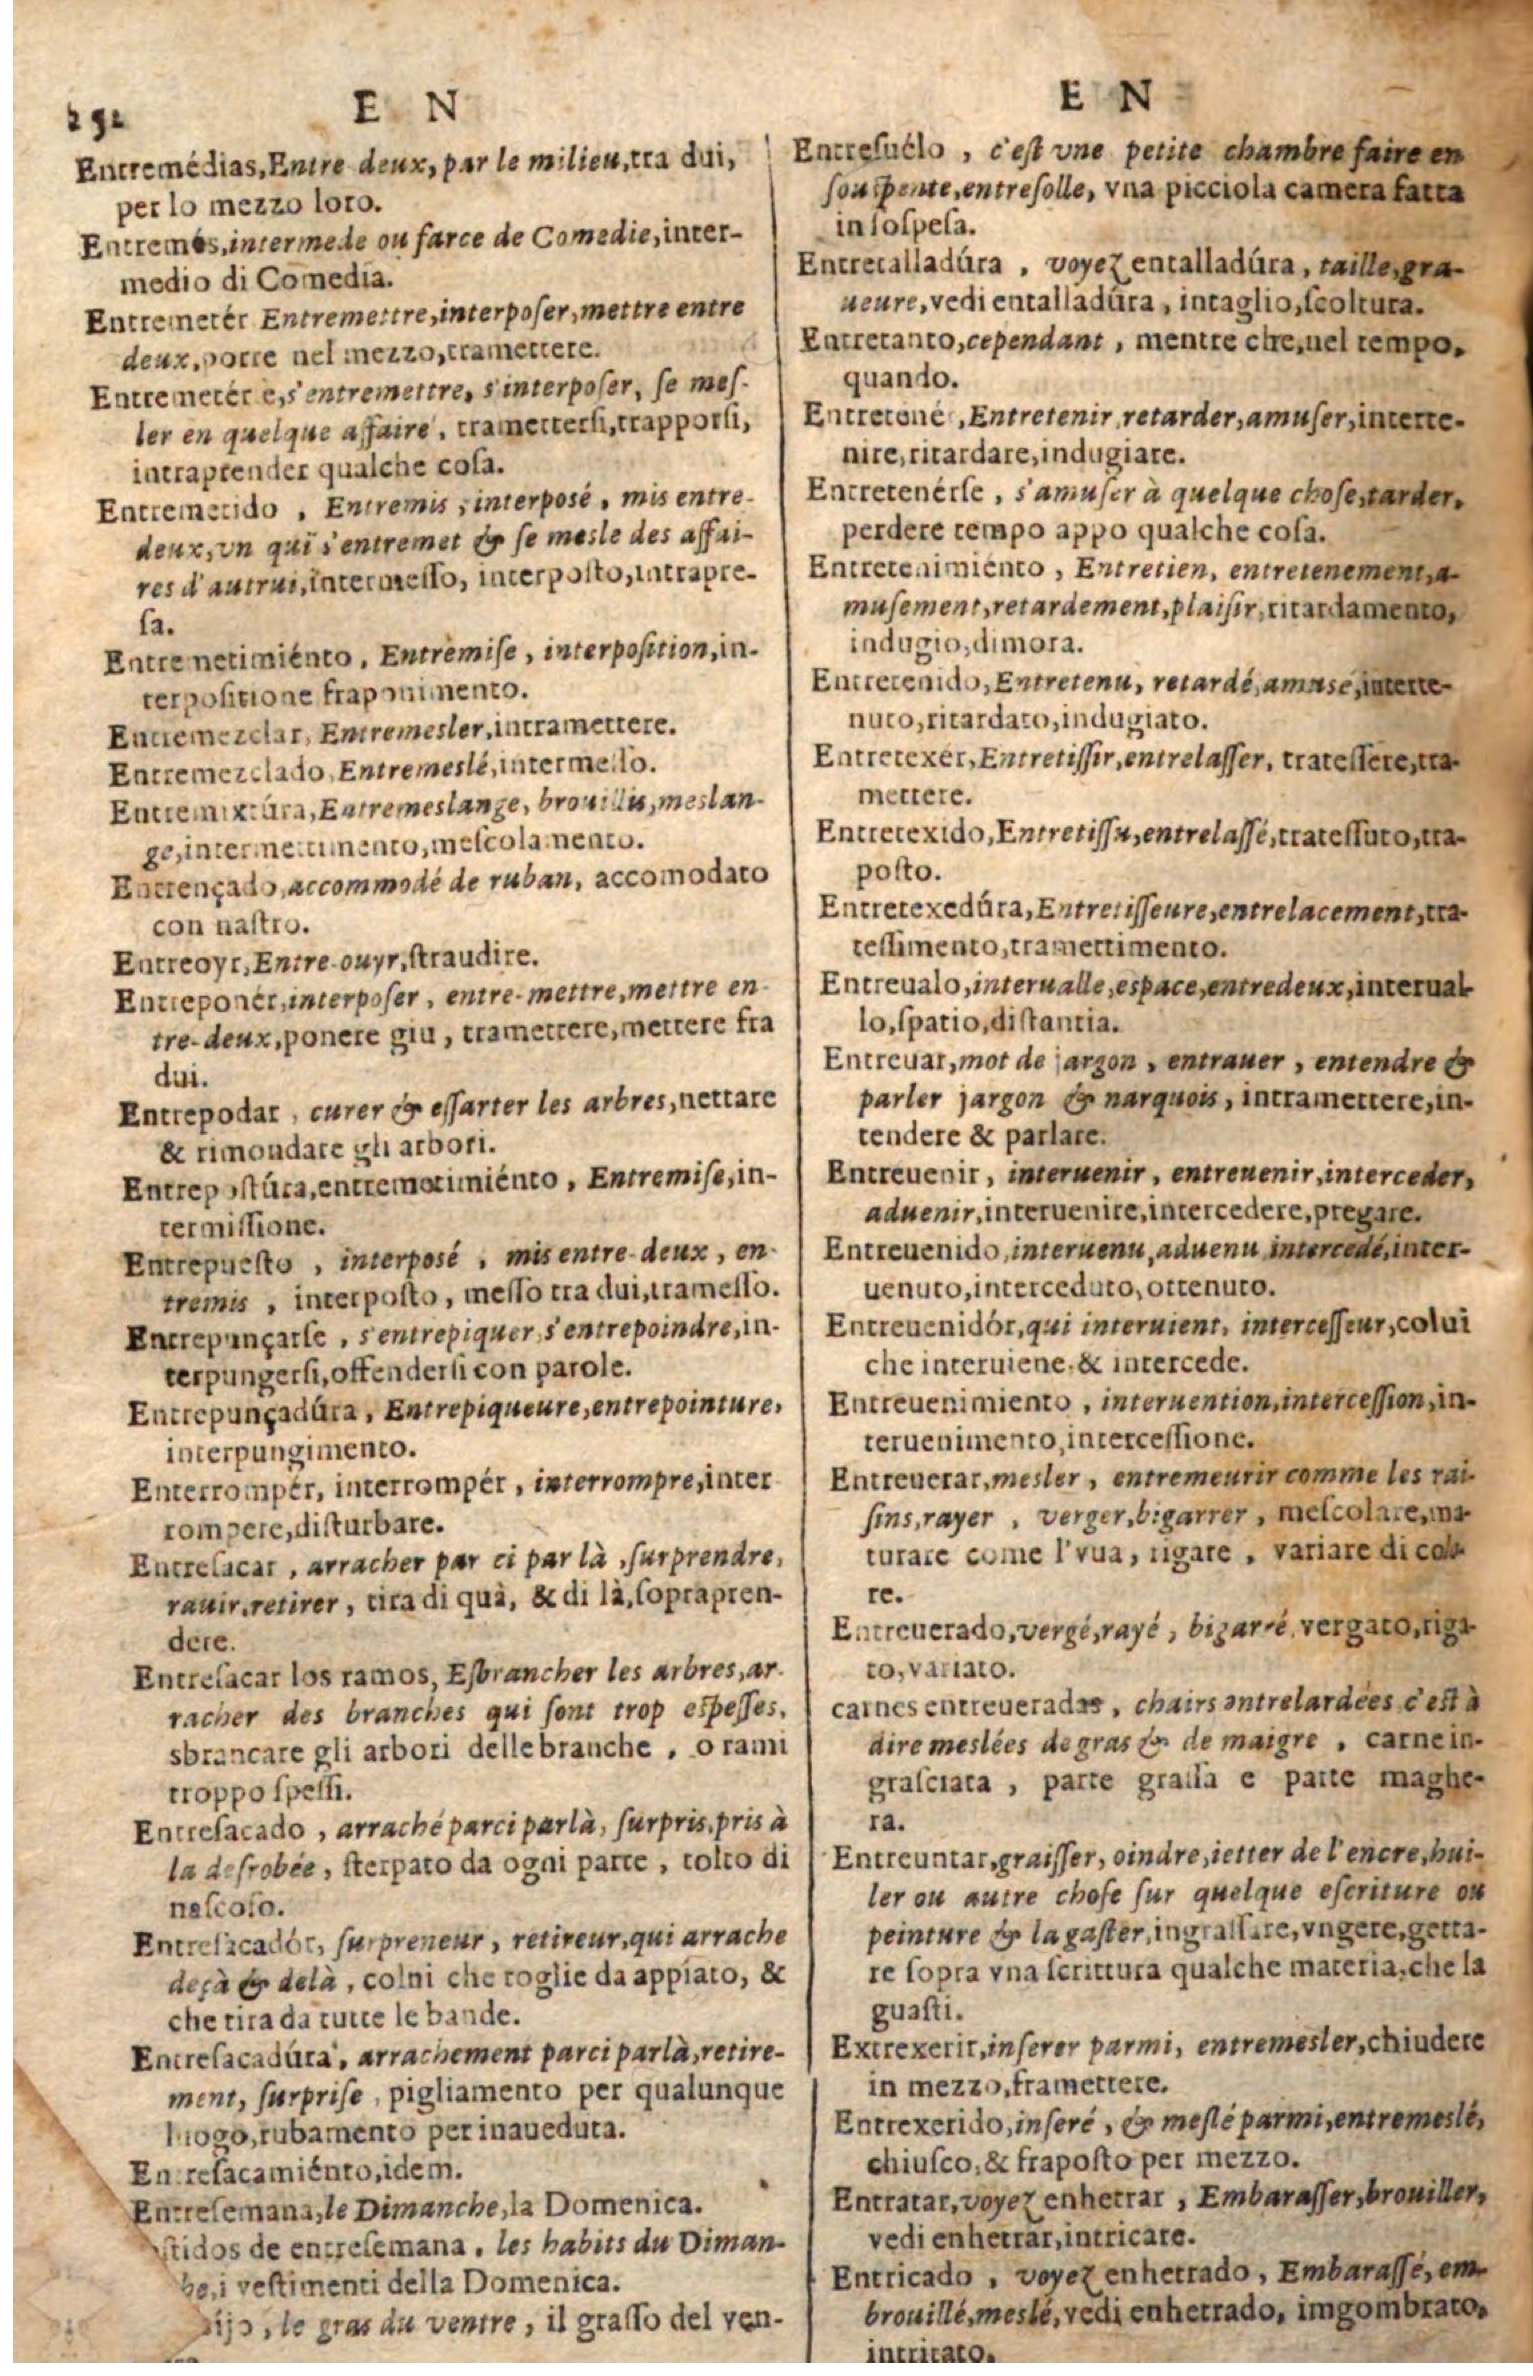 252
E N
Entremédias, Entre deux, par le milieu, tra dui,
per lo mezzo loro.
Entremés, intermede ou farce de Comedie, inter-
medio di Comedia.
Entremetér Entremettre, interposer, mettre entre
deux, porre nel mezzo, tramettere.
Entremetér e, s'entremettre, s'interposer, se mes-
ler en quelque affaire, tramettersi, trapporsi,
intraprender qualche cosa.
Entremetido, Entremis, interposé, mis entre-
deux, vn qui s'entremet & se mesle des affai-
res d'autrui, intermesso, interposto, intrapre-
sa.
Entremetimiénto, Entremise, interposition, in-
terpositione fraponimento.
Entremezclar, Entremesler, intramettere.
Entremezclado, Entremeslé, intermesso.
Entremixtúra, Entremeslange, brouillis, meslan-
ge, intermettimento, mescolamento.
Entrençado, accommodé de ruban, accomodato
con nastro.
Entreoyr, Entre-ouyr, straudire.
Entreponér, interposer, entre-mettre, mettre en-
tre-deux, ponere giu, tramettere, mettere fra
dui.
Entrepodar, curer & essarter les arbres, nettare
& rimondare gli arbori.
Entrepostúra, entremetimiénto, Entremise, in-
termissione.
Entrepuesto, interposé, mis entre-deux, en-
tremis, interposto, messo tra dui, tramesso.
Entrepunçarse, s'entrepiquer, s'entrepoindre, in-
terpungersi, offendersi con parole.
Entrepunçadúra, Entrepiqueure, entrepointure,
interpungimento.
Enterrompér, interrompér, interrompre, inter
rompere, disturbare.
Entresacar, arracher par ci par là, surprendre,
rauir, retirer, tira di quà, & di là, soprapren-
dere.
Entresacar los ramos, Esbrancher les arbres, ar-
racher des branches qui sont trop espesses,
sbrancare gli arbori delle branche, o rami
troppo spessi.
Entresacado, arraché parci parlà, surpris, pris à
la desrobée, sterpato da ogni parte, tolto di
nascoso.
Entresacadór, surpreneur, retireur, qui arrache
deçà & delà, colni che toglie da appiato, &
che tira da tutte le bande.
Entresacadúra, arrachement parci parlà, retire-
ment, surprise, pigliamento per qualunque
luogo, rubamento per inaueduta.
Entresacamiénto, idem.
Entresemana, le Dimanche, la Domenica.
stidos de entresemana, les habits du Diman-
he, i vestimenti della Domenica.
ijo, le gras du ventre, il grasso del ven-
E N
Entresuélo, c'est vne petite chambre faire en
souspente, entresolle, vna picciola camera fatta
in sospesa.
Entretalladúra, voyez entalladúra, taille, gra-
ueure, vedi entalladúra, intaglio, scoltura.
Entretanto, cependant, mentre che, nel tempo,
quando.
Entretené, Entretenir, retarder, amuser, interte-
nire, ritardare, indugiare.
Entretenérse, s'amuser à quelque chose, tarder,
perdere tempo appo qualche cosa.
Entretenimiénto, Entretien, entretenement, a-
musement, retardement, plaisir, ritardamento,
indugio, dimora.
Entretenido, Entretenu, retardé, amusé, interte-
nuto, ritardato, indugiato.
Entretexér, Entretissir, entrelasser, tratessere, tra-
mettere.
Entretexido, Entretissu, entrelassé, tratessuto, tra-
posto.
Entretexedúra, Entretisseure, entrelacement, tra-
tessimento, tramettimento.
Entreualo, interualle, espace, entredeux, interual-
lo, spatio, distantia.
Entreuar, mot de jargon, entrauer, entendre &
parler jargon & narquois, intramettere, in-
tendere & parlare.
Entreuenir, interuenir, entreuenir, interceder,
aduenir, interuenire, intercedere, pregare.
Entreuenido, interuenu, aduenu, intercedé, inter-
uenuto, interceduto, ottenuto.
Entreuenidór, qui interuient, intercesseur, colui
che interuiene, & intercede.
Entreuenimiento, interuention, intercession, in-
teruenimento, intercessione.
Entreuerar, mesler, entremeurir comme les rai-
sins, rayer, verger, bigarrer, mescolare, ma-
turare come l'vua, rigare, variare di colo-
re.
Entreuerado, vergé, rayé, bigarré, vergato, riga-
to, variato.
carnes entreueradas, chairs entrelardées c'est à
dire meslées de gras & de maigre, carne in-
grasciata, parte grassa e parte maghe-
ra.
Entreuntar, graisser, oindre, ietter de l'encre, hui-
ler ou autre chose sur quelque escriture ou
peinture & la gaster, ingrassare, vngere, getta-
re sopra vna scrittura qualche materia, che la
guasti.
Extrexerir, inserer parmi, entremesler, chiudere
in mezzo, framettere.
Entrexerido, inseré, & meslé parmi, entremeslé,
chiusco, & fraposto per mezzo.
Entratar, voyez enhetrar, Embarasser, brouiller,
vedi enhetrar, intricare.
Entricado, voyez enhetrado, Embarassé, em-
brouillé, meslé, vedi enhetrado, imgombrato,
intricato.